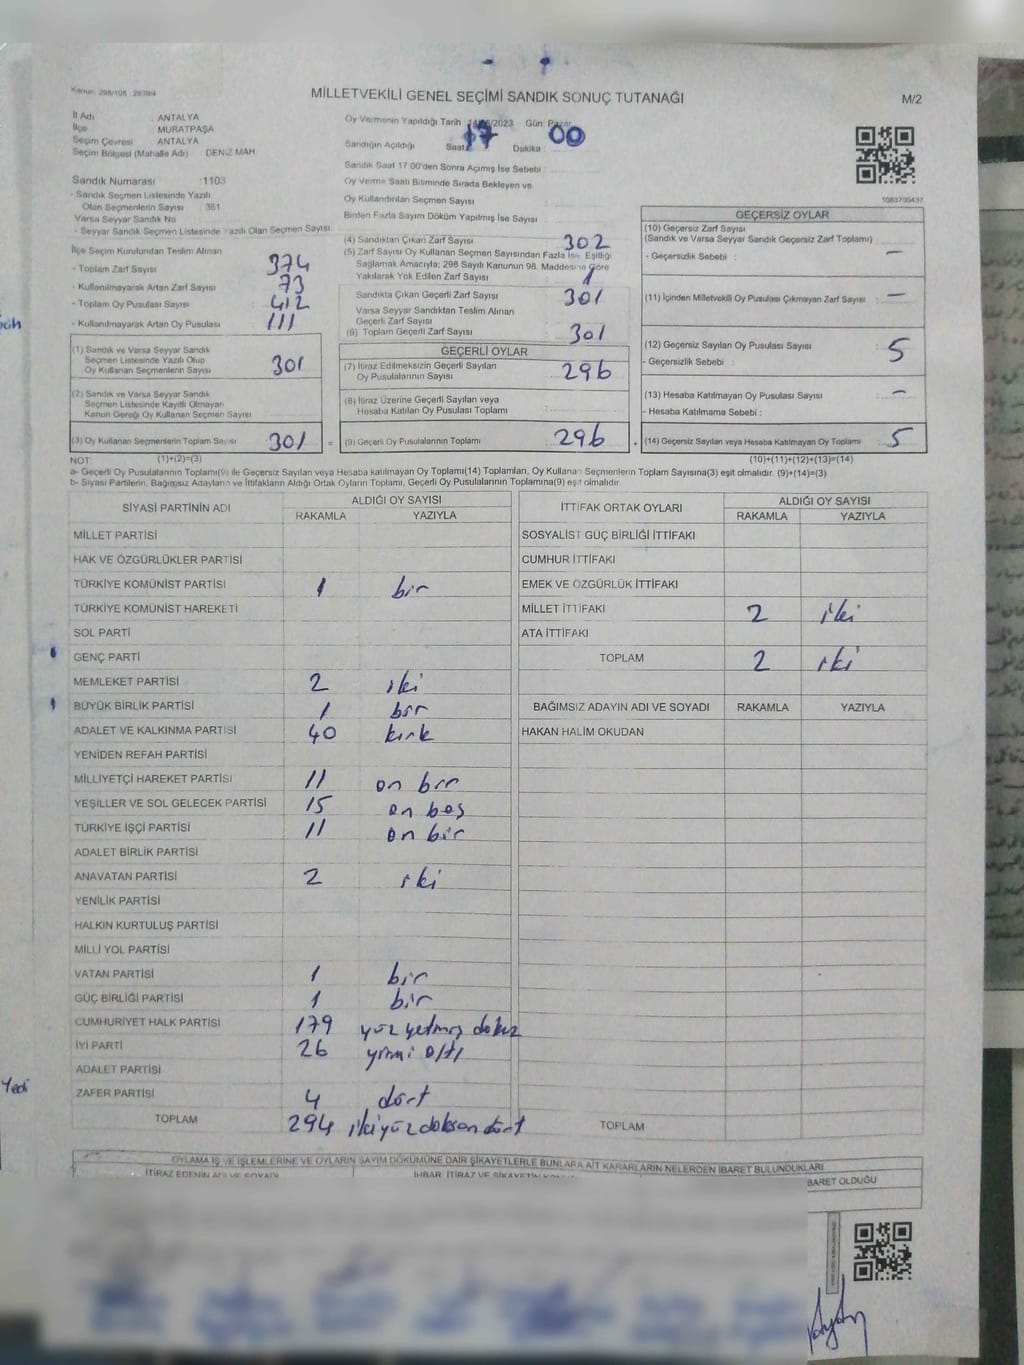 MİLLETVEKİLİ GENEL SEÇİMİ SANDIK SONUÇ TUTANAĞI
M/2
İl Adı : ANTALYA
İlçe MURATPAŞA
Seçim Çevresi ANTALYA
Seçim Bölgesi (Mahalle Adı) DENİZ MAH
Sandık Numarası :1103
- Sandık Seçmen Listesinde Yazılı
Olan Seçmenlerin Sayısı 361
Varsa Seyyar Sandık No
- Seyyar Sandık Seçmen Listesinde Yazılı Olan Seçmen Sayısı:
İlçe Seçim Kurulundan Teslim Alınan
- Toplam Zarf Sayısı 374
- Kullanılmayarak Artan Zarf Sayısı 73
- Toplam Oy Pusulası Sayısı 412
- Kullanılmayarak Artan Oy Pusulası 111
(1) Sandık ve Varsa Seyyar Sandık
Seçmen Listesinde Yazılı Olup
Oy Kullanan Seçmenlerin Sayısı 301
(2) Sandık ve Varsa Seyyar Sandık
Seçmen Listesinde Kayıtlı Olmayan
Kanun Gereği Oy Kullanan Seçmen Sayısı
(3) Oy Kullanan Seçmenlerin Toplam Sayısı 301 =
Oy Vermenin Yapıldığı Tarih : /2023 Gün: Pazar
Sandığın Açıldığı Saat: 17 Dakika : 00
Sandık Saat 17:00'den Sonra Açımış İse Sebebi
Oy Verme Saati Bitiminde Sırada Bekleyen ve
Oy Kullandırılan Seçmen Sayısı
Birden Fazla Sayım Döküm Yapılmış İse Sayısı
(4) Sandıktan Çıkan Zarf Sayısı 302
(5) Zarf Sayısı Oy Kullanan Seçmen Sayısından Fazla İse Eşitliği
Sağlamak Amacıyla; 298 Sayılı Kanunun 98. Maddesine Göre
Yakılarak Yok Edilen Zarf Sayısı 1
Sandıkta Çıkan Geçerli Zarf Sayısı 301
Varsa Seyyar Sandıktan Teslim Alınan
Geçerli Zarf Sayısı
(6) Toplam Geçerli Zarf Sayısı 301
GEÇERLİ OYLAR
(7) İtiraz Edilmeksizin Geçerli Sayılan
Oy Pusulalarının Sayısı 296
(8) İtiraz Üzerine Geçerli Sayılan veya
Hesaba Katılan Oy Pusulası Toplamı
(9) Geçerli Oy Pusulalarının Toplamı 296 +
GEÇERSİZ OYLAR
(10) Geçersiz Zarf Sayısı
(Sandık ve Varsa Seyyar Sandık Geçersiz Zarf Toplamı) :
- Geçersizlik Sebebi : —
(11) İçinden Milletvekili Oy Pusulası Çıkmayan Zarf Sayısı : —
(12) Geçersiz Sayılan Oy Pusulası Sayısı : 5
- Geçersizlik Sebebi :
(13) Hesaba Katılmayan Oy Pusulası Sayısı : —
- Hesaba Katılmama Sebebi :
(14) Geçersiz Sayılan veya Hesaba Katılmayan Oy Toplamı : 5
NOT: (1)+(2)=(3) (10)+(11)+(12)+(13)=(14)
a- Geçerli Oy Pusulalarının Toplamı(9) ile Geçersiz Sayılan veya Hesaba katılmayan Oy Toplamı(14) Toplamları, Oy Kullanan Seçmenlerin Toplam Sayısına(3) eşit olmalıdır. (9)+(14)=(3)
b- Siyasi Partilerin, Bağımsız Adayların ve İttifakların Aldığı Ortak Oyların Toplamı, Geçerli Oy Pusulalarının Toplamına(9) eşit olmalıdır.
SİYASİ PARTİNİN ADI ALDIĞI OY SAYISI
RAKAMLA YAZIYLA
MİLLET PARTİSİ
HAK VE ÖZGÜRLÜKLER PARTİSİ
TÜRKİYE KOMÜNİST PARTİSİ 1 bir
TÜRKİYE KOMÜNİST HAREKETİ
SOL PARTİ
GENÇ PARTİ
MEMLEKET PARTİSİ 2 iki
BÜYÜK BİRLİK PARTİSİ 1 bir
ADALET VE KALKINMA PARTİSİ 40 kırk
YENİDEN REFAH PARTİSİ
MİLLİYETÇİ HAREKET PARTİSİ 11 on bir
YEŞİLLER VE SOL GELECEK PARTİSİ 15 on beş
TÜRKİYE İŞÇİ PARTİSİ 11 on bir
ADALET BİRLİK PARTİSİ
ANAVATAN PARTİSİ 2 iki
YENİLİK PARTİSİ
HALKIN KURTULUŞ PARTİSİ
MİLLİ YOL PARTİSİ
VATAN PARTİSİ 1 bir
GÜÇ BİRLİĞİ PARTİSİ 1 bir
CUMHURİYET HALK PARTİSİ 179 yüz yetmiş dokuz
İYİ PARTİ 26 yirmi altı
ADALET PARTİSİ
ZAFER PARTİSİ 4 dört
TOPLAM 294 iki yüz doksan dört
İTTİFAK ORTAK OYLARI ALDIĞI OY SAYISI
RAKAMLA YAZIYLA
SOSYALİST GÜÇ BİRLİĞİ İTTİFAKI
CUMHUR İTTİFAKI
EMEK VE ÖZGÜRLÜK İTTİFAKI
MİLLET İTTİFAKI 2 iki
ATA İTTİFAKI
TOPLAM 2 iki
BAĞIMSIZ ADAYIN ADI VE SOYADI RAKAMLA YAZIYLA
HAKAN HALİM OKUDAN
TOPLAM
OYLAMA İŞ VE İŞLEMLERİNE VE OYLARIN SAYIM DÖKÜMÜNE DAİR ŞİKAYETLERLE BUNLARA AİT KARARLARIN NELERDEN İBARET BULUNDUKLARI
İTİRAZ EDENİN ADI VE SOYADI
BARET OLDUĞU
Yedi